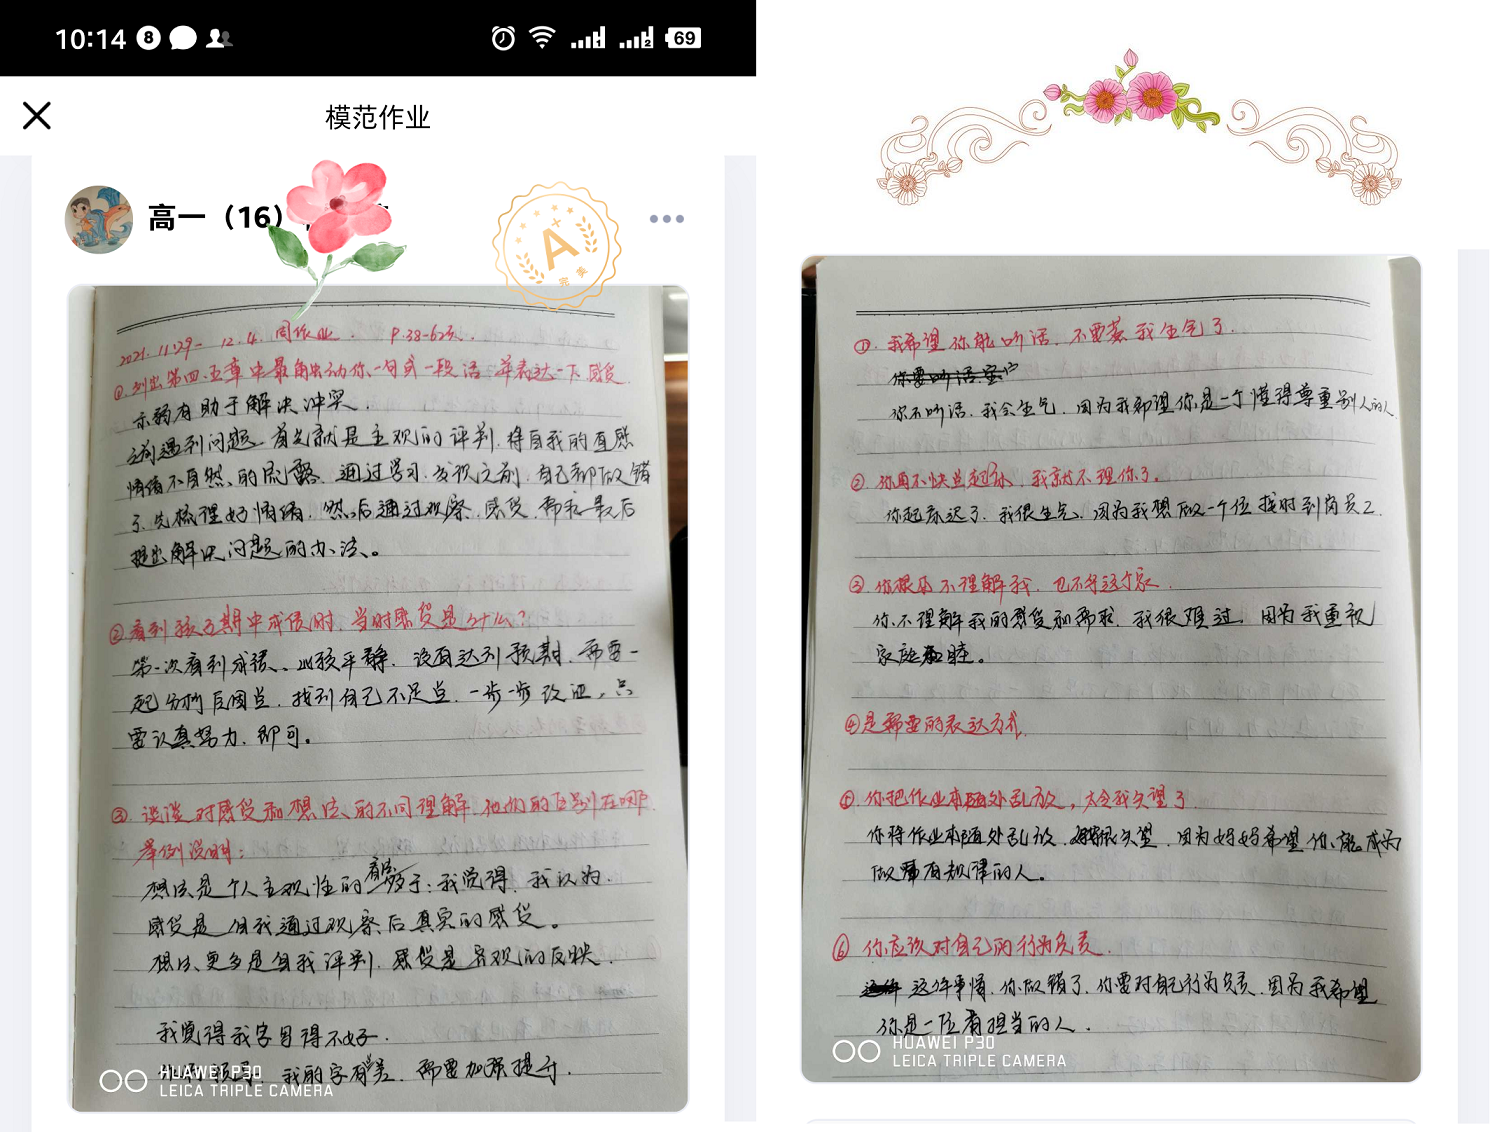 10:14
8
69
模范作业
高一（16）
A+
完美
2021. 11.29- 12.4. 周作业. P.38-62页.
①列出第四、五章中最触动你一句或一段话 并表达一下感受.
示弱有助于解决冲突.
之前遇到问题. 首先就是主观的评判. 将自我的直感
情绪不自然、的流露. 通过学习, 发现之前, 自己都做错
了. 先梳理好情绪. 然后通过观察. 感受, 需求 最后
提出解决问题的办法。
②看到孩子期中成绩时, 当时感受是什么?
第一次看到成绩、比较平静. 没有达到预期. 需要一
起分析原因点. 找到自己不足点. 一步一步改正, 只
要认真努力, 即可。
③ 谈谈对感受和想法、的不同理解. 他们的区别在哪.
举例说明:
想法是个人主观性的 : 我觉得. 我认为.
感受是 自我通过观察后真实的感受。
想法更多是自我评判. 感受是客观的反映.
我觉得我字写得不好.
我的字有差. 需要加强提升.
HUAWEI P30
LEICA TRIPLE CAMERA
①. 我希望你能听话, 不要惹我生气了.
你要听话.
你不听话, 我会生气, 因为我希望你是一个懂得尊重别人的人.
② 你再不快点起床, 我就不理你了.
你起床迟了, 我很生气, 因为我想做一个位按时到岗员工.
③ 你根本不理解我, 也不爱这个家.
你不理解我的感受和需求, 我很难过. 因为我重视
家庭和睦。
④是需要的表达方式
⑤ 你把作业本随处乱放, 太令我失望了
你将作业本随处乱放. 我很失望, 因为妈妈希望你能成为
做事有规律的人。
⑥ 你应该对自己的行为负责.
这件事情, 你做错了. 你要对自己行为负责. 因为我希望
你是一位有担当的人.
HUAWEI P30
LEICA TRIPLE CAMERA